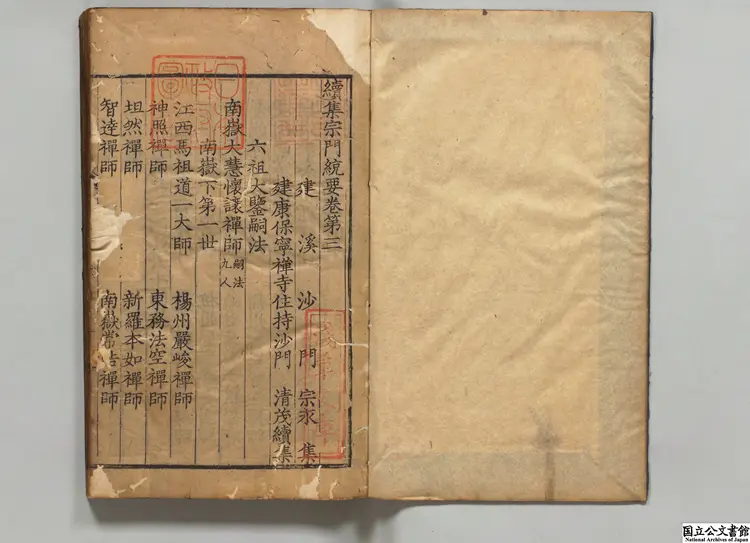 續集宗門統要卷第三
建溪沙門宗永集
建康保寧禪寺住持沙門 清茂續集
六祖大鑒嗣法
南嶽大慧懷讓禪師 嗣法九人
南嶽下第一世
江西馬祖道一大師 楊州嚴峻禪師
神照禪師 東務法空禪師
坦然禪師 新羅本如禪師
智達禪師 南嶽常浩禪師
国立公文書館
National Archives of Japan